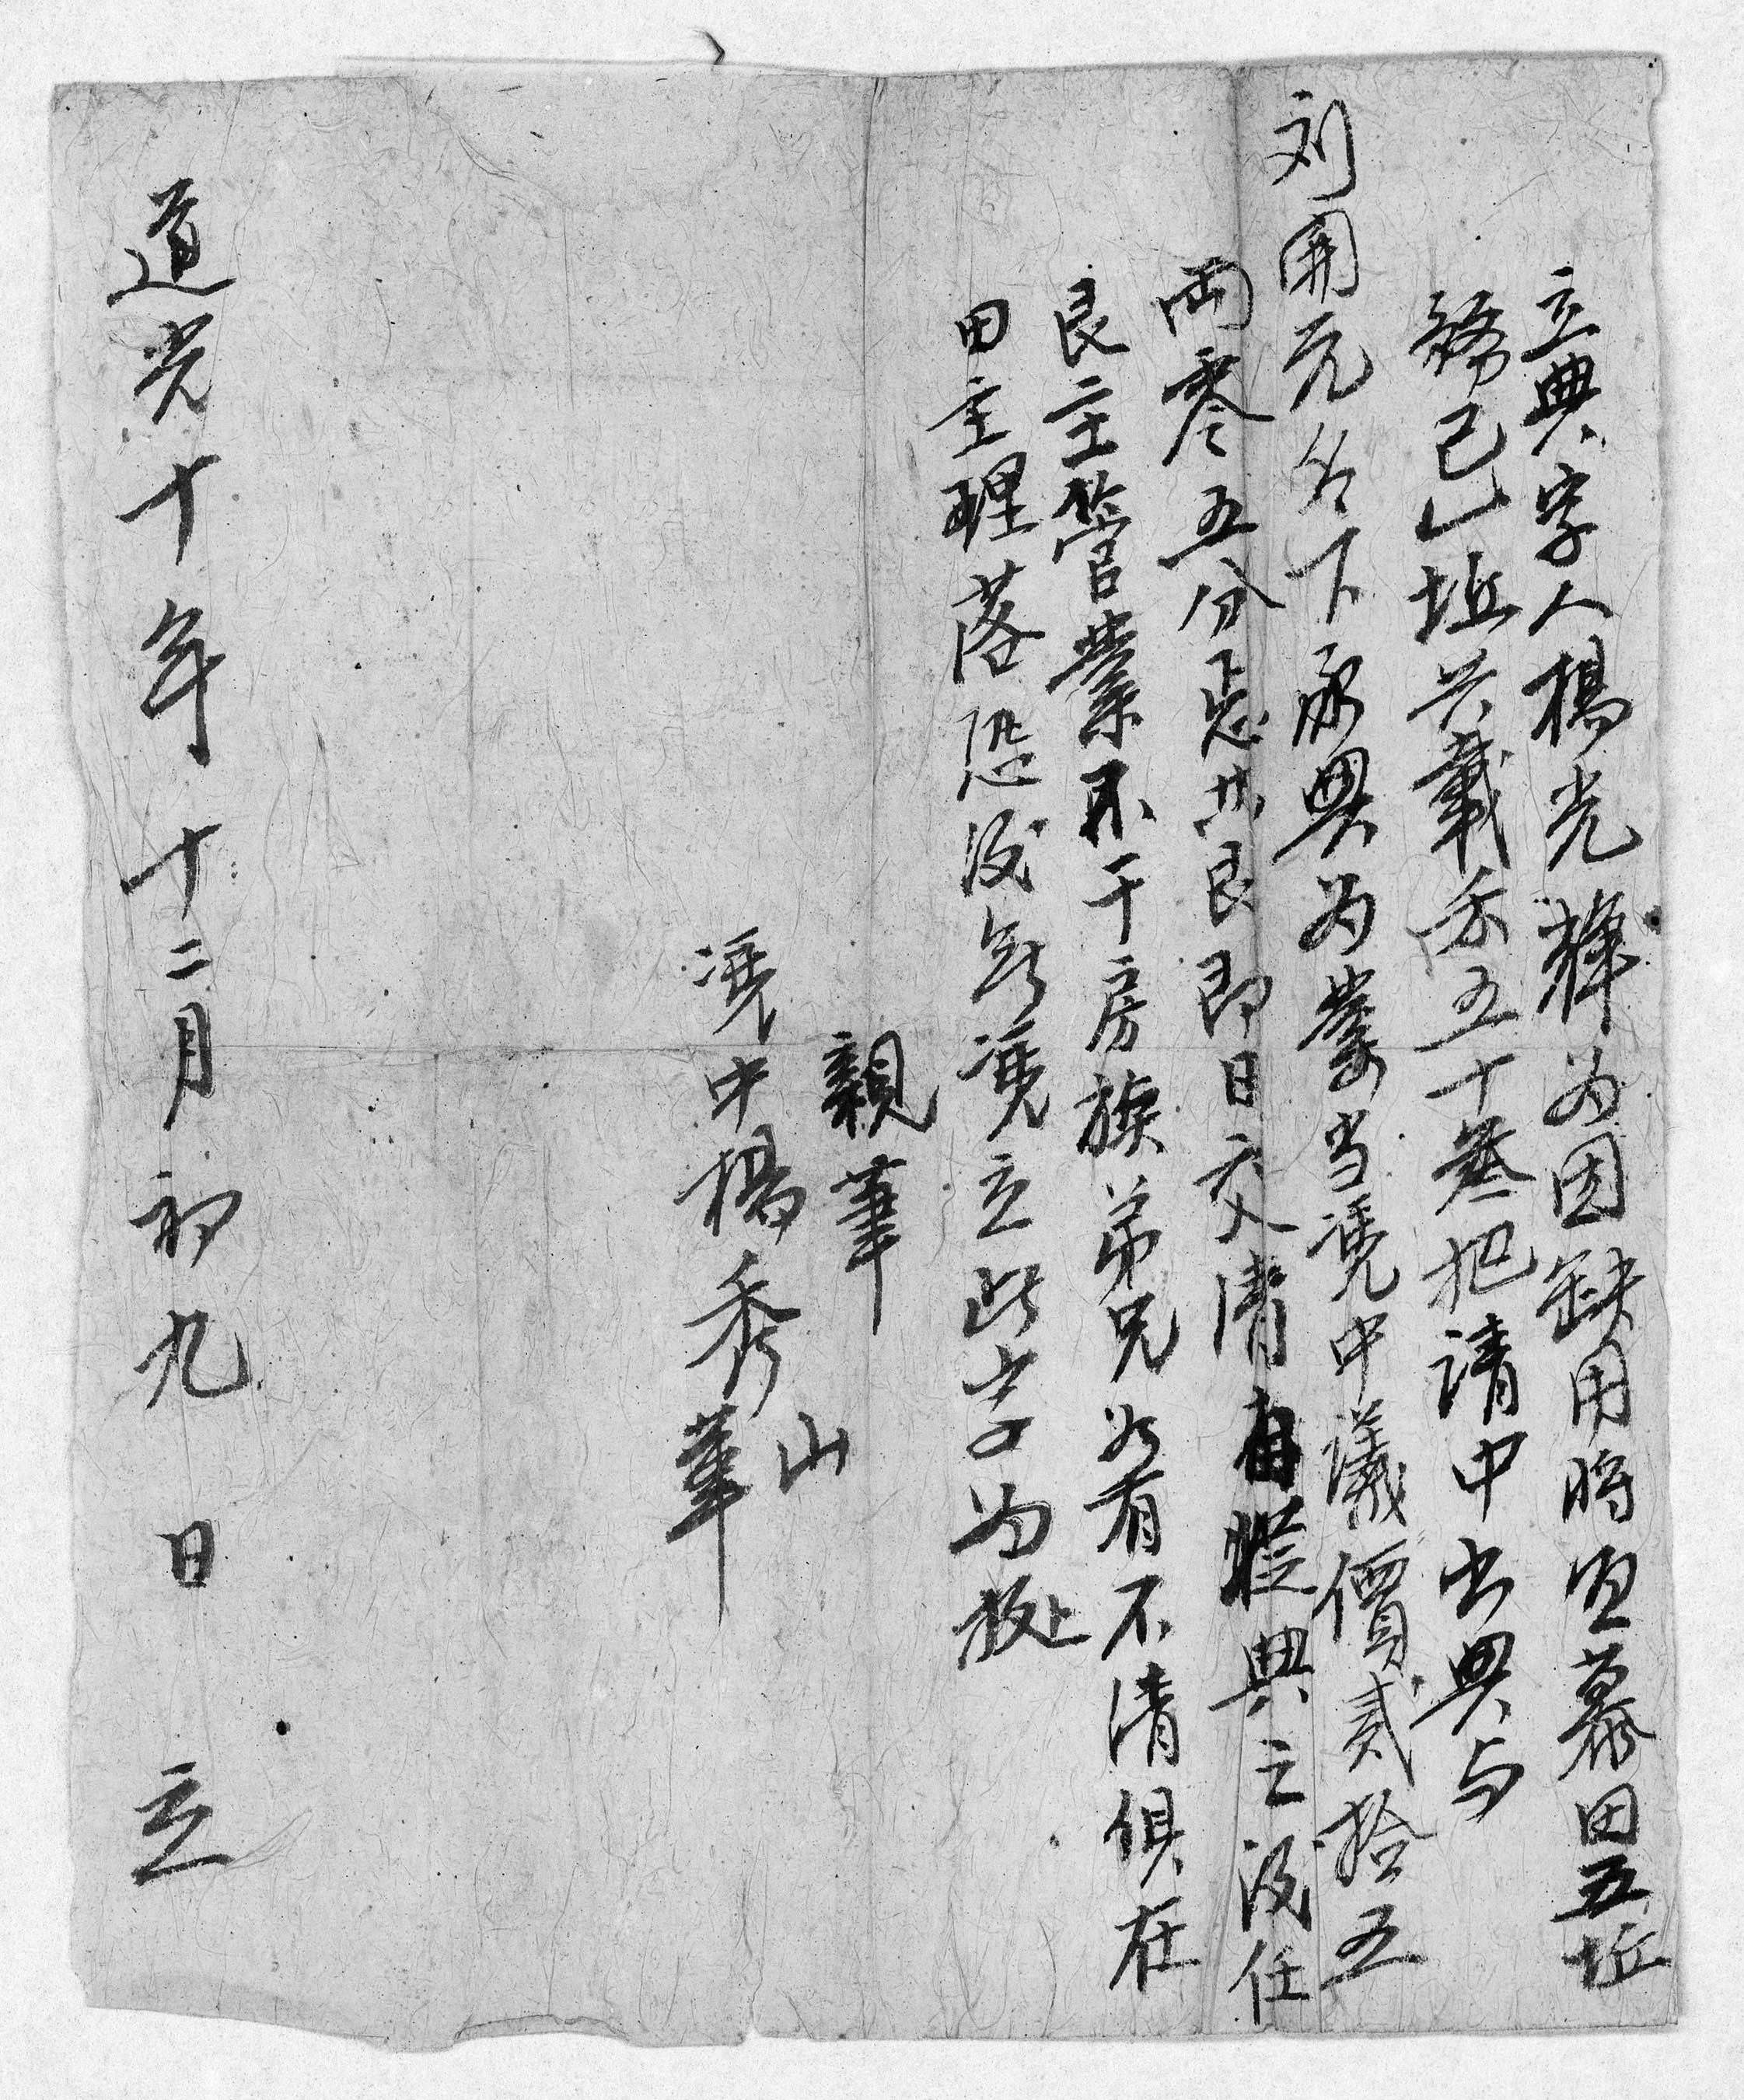 立典字人楊光輝为因缺用将凹慕田五坵
已山坵共載禾五十叁把請中出典与
刘開元名下承典为業当凴中議價貳拾五
両零五分其艮即日交清自典之後任
艮主管業不干房族弟兄如有不清俱在
田主理落恐後無凴立此字为㨿
親筆
凴中楊秀山
華
道光十年十二月初九日立